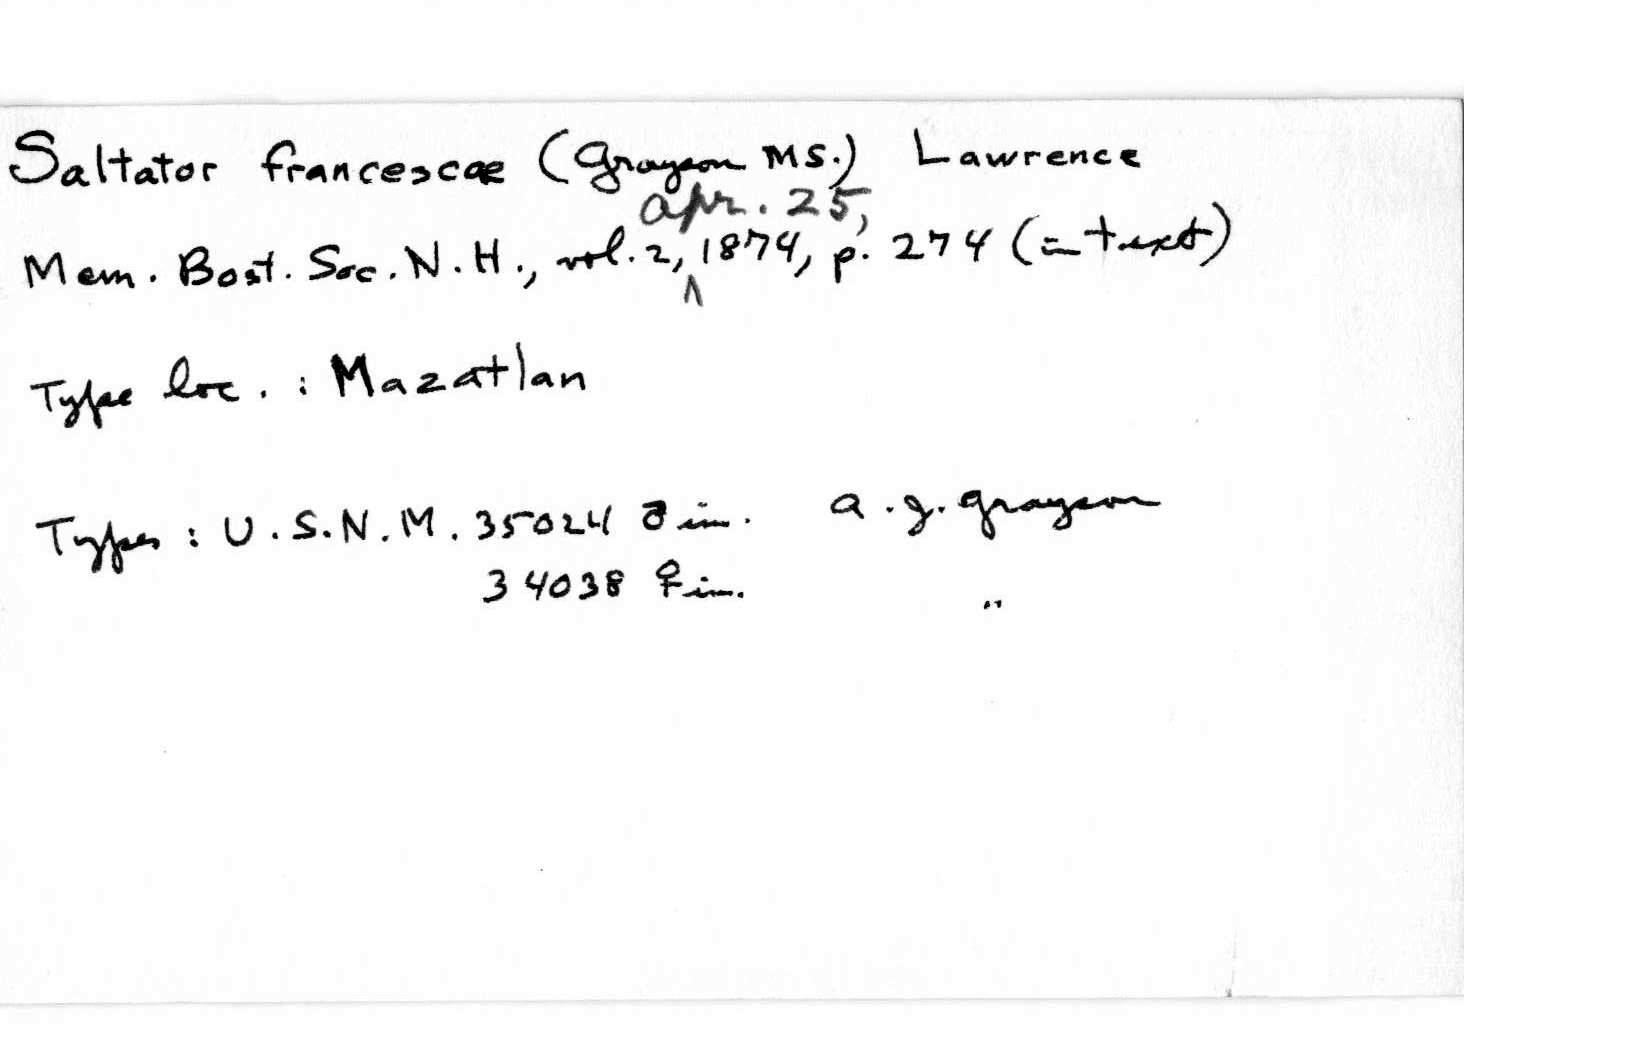 Saltator francescae (Grayson MS.) Lawrence
Apr. 25,
Mem. Bost. Soc. N. H., vol. 2, ^ 1874, p. 274 (in text)
Type loc. : Mazatlan
Types : U.S.N.M. 35024 ♂ im. A. J. Grayson
34038 ♀ im. "